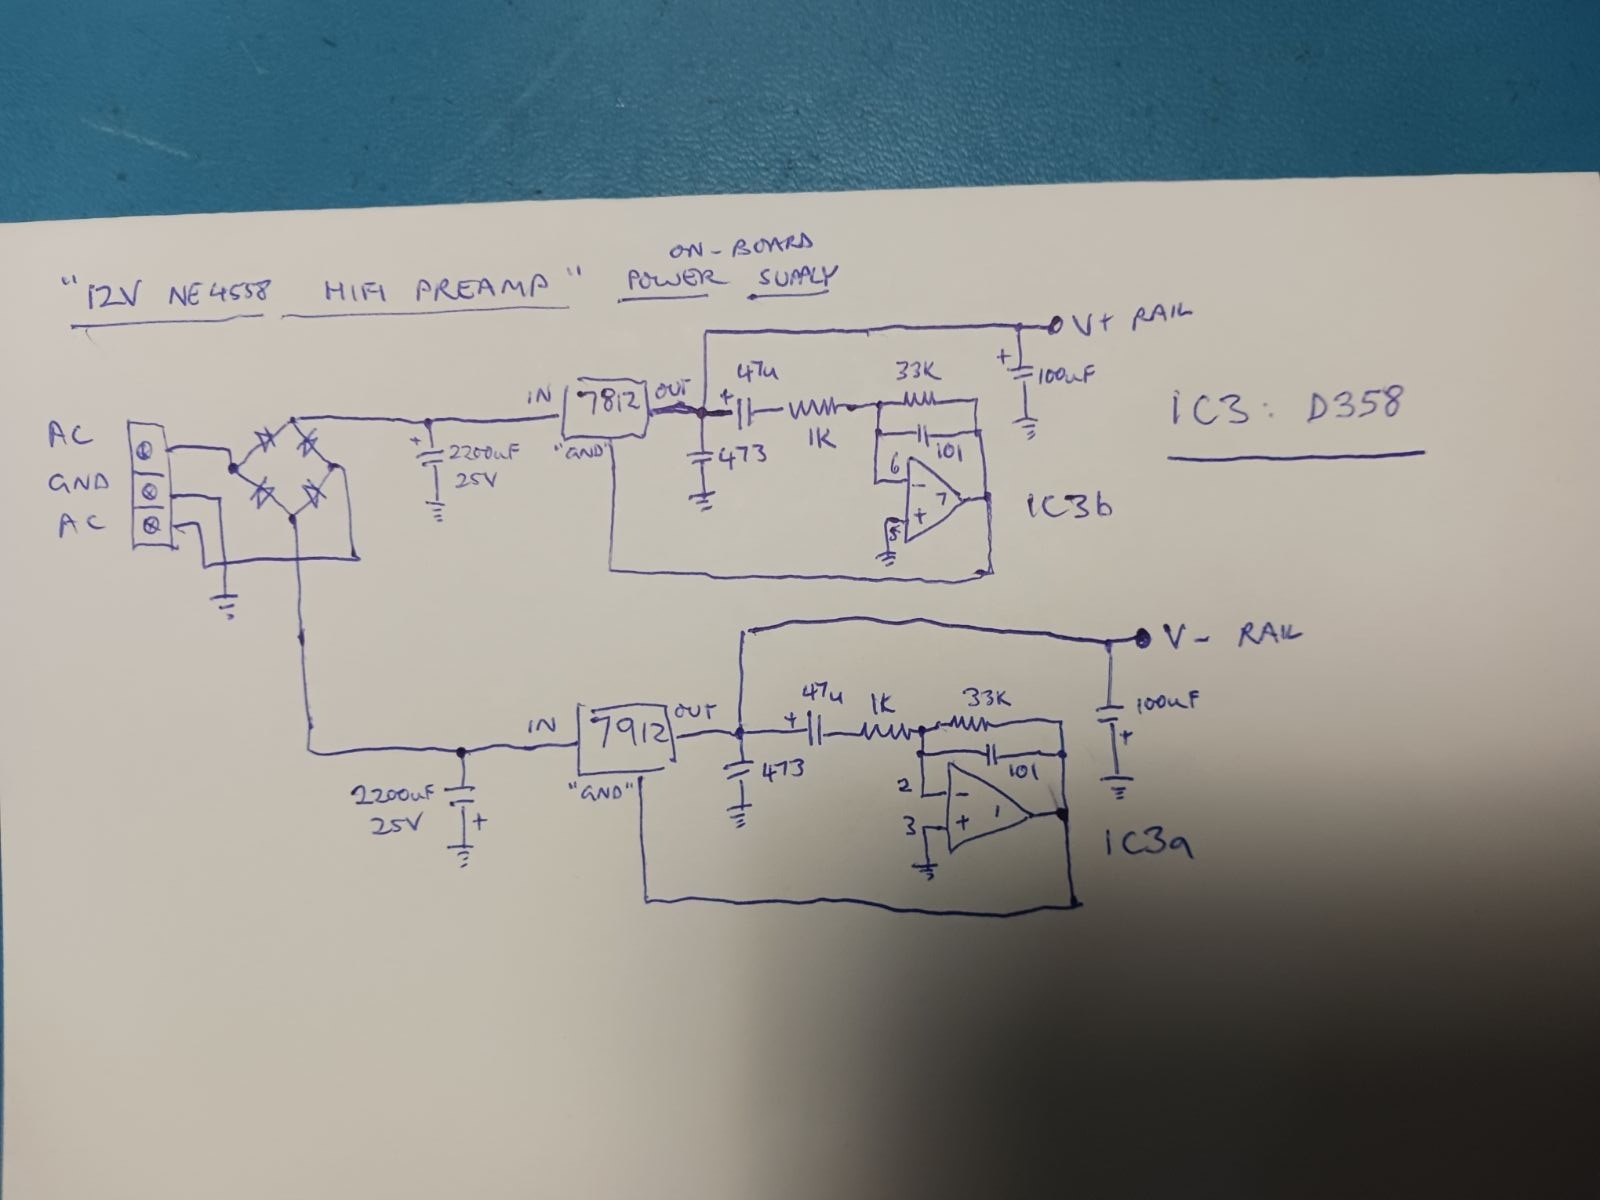 ON-BOARD
"12V NE4558 HIFI PREAMP" POWER SUPPLY
V+ RAIL
AC
GND
AC
+
2200uF
25V
IN
7812
OUT
"GND"
+
47u
473
1K
33K
101
6
-
7
+
5
IC3b
+
100uF
IC3: D358
V- RAIL
2200uF
25V
+
IN
7912
OUT
"GND"
+
47u
473
1K
33K
101
2
-
1
3
+
IC3a
100uF
+